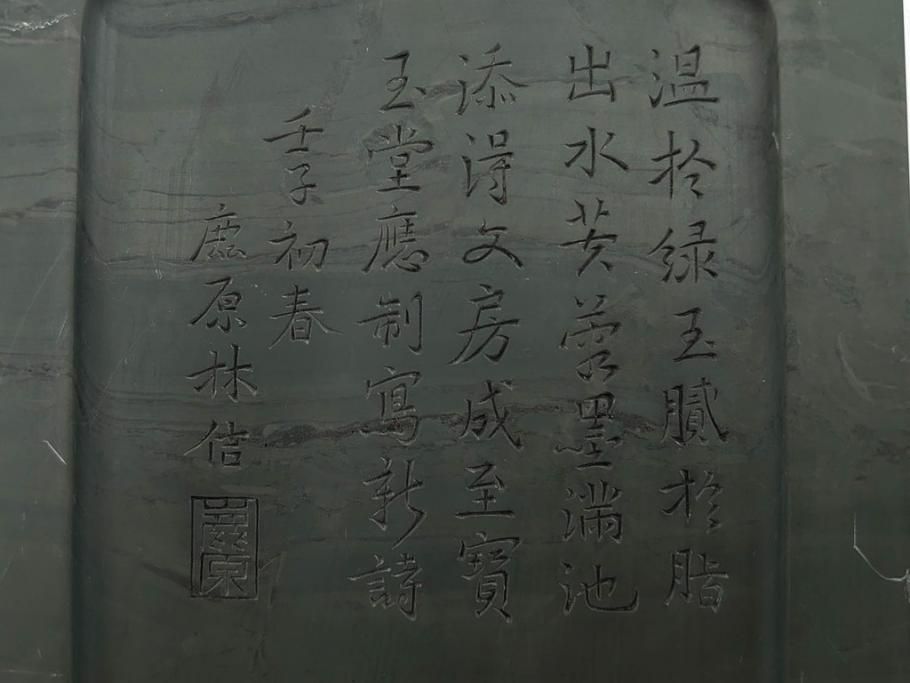 温於緑玉膩於脂
出水芙蓉墨滿池
添得文房成至寶
玉堂應制寫新詩
壬子初春
鹿原林佶